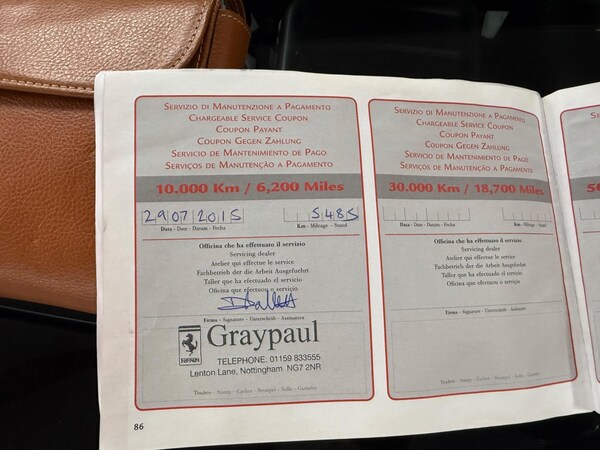 SERVIZIO DI MANUTENZIONE A PAGAMENTO
CHARGEABLE SERVICE COUPON
COUPON PAYANT
COUPON GEGEN ZAHLUNG
SERVICIO DE MANTENIMIENTO DE PAGO
SERVIÇOS DE MANUTENÇÃO A PAGAMENTO
10.000 Km / 6,200 Miles
29 07 2015
5485
Data - Date - Datum - Fecha
Km - Mileage - Stand
Officina che ha effettuato il servizio
Servicing dealer
Atelier qui effectue le service
Fachbetrieb der die Arbeit Ausgefuehrt
Taller que ha efectuado el servicio
Oficina que efectuou o serviço
Firma - Signature - Unterscheid - Assinatura
Ferrari
Graypaul
TELEPHONE. 01159 833555
Lenton Lane, Nottingham NG7 2NR
86
SERVIZIO DI MANUTENZIONE A PAGAMENTO
CHARGEABLE SERVICE COUPON
COUPON PAYANT
COUPON GEGEN ZAHLUNG
SERVICIO DE MANTENIMIENTO DE PAGO
SERVIÇOS DE MANUTENÇÃO A PAGAMENTO
30.000 Km / 18,700 Miles
Data - Date - Datum - Fecha
Km - Mileage - Stand
Officina che ha effettuato il servizio
Servicing dealer
Atelier qui effectue le service
Fachbetrieb der die Arbeit Ausgefuehrt
Taller que ha efectuado el servicio
Oficina que efectuou o serviço
Firma - Signature - Unterscheid - Assinatura
Timbro - Stamp - Cachet - Stempel - Sello - Carimbo